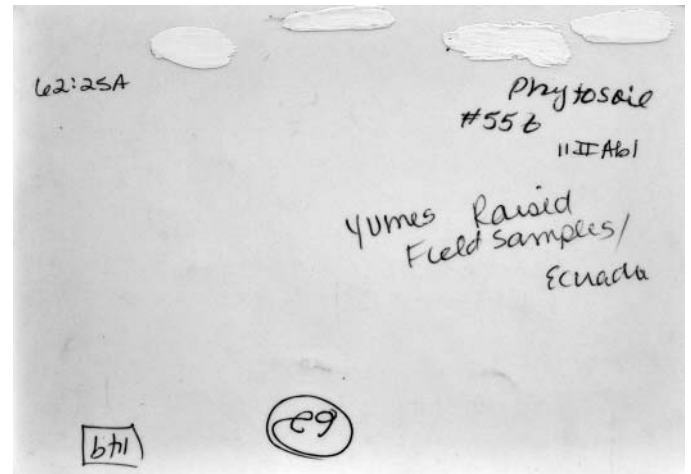 62:25A
Phytosoil
#55 b
11 II Ab1
Yumes Raised
Field Samples/
Ecuador
62
149